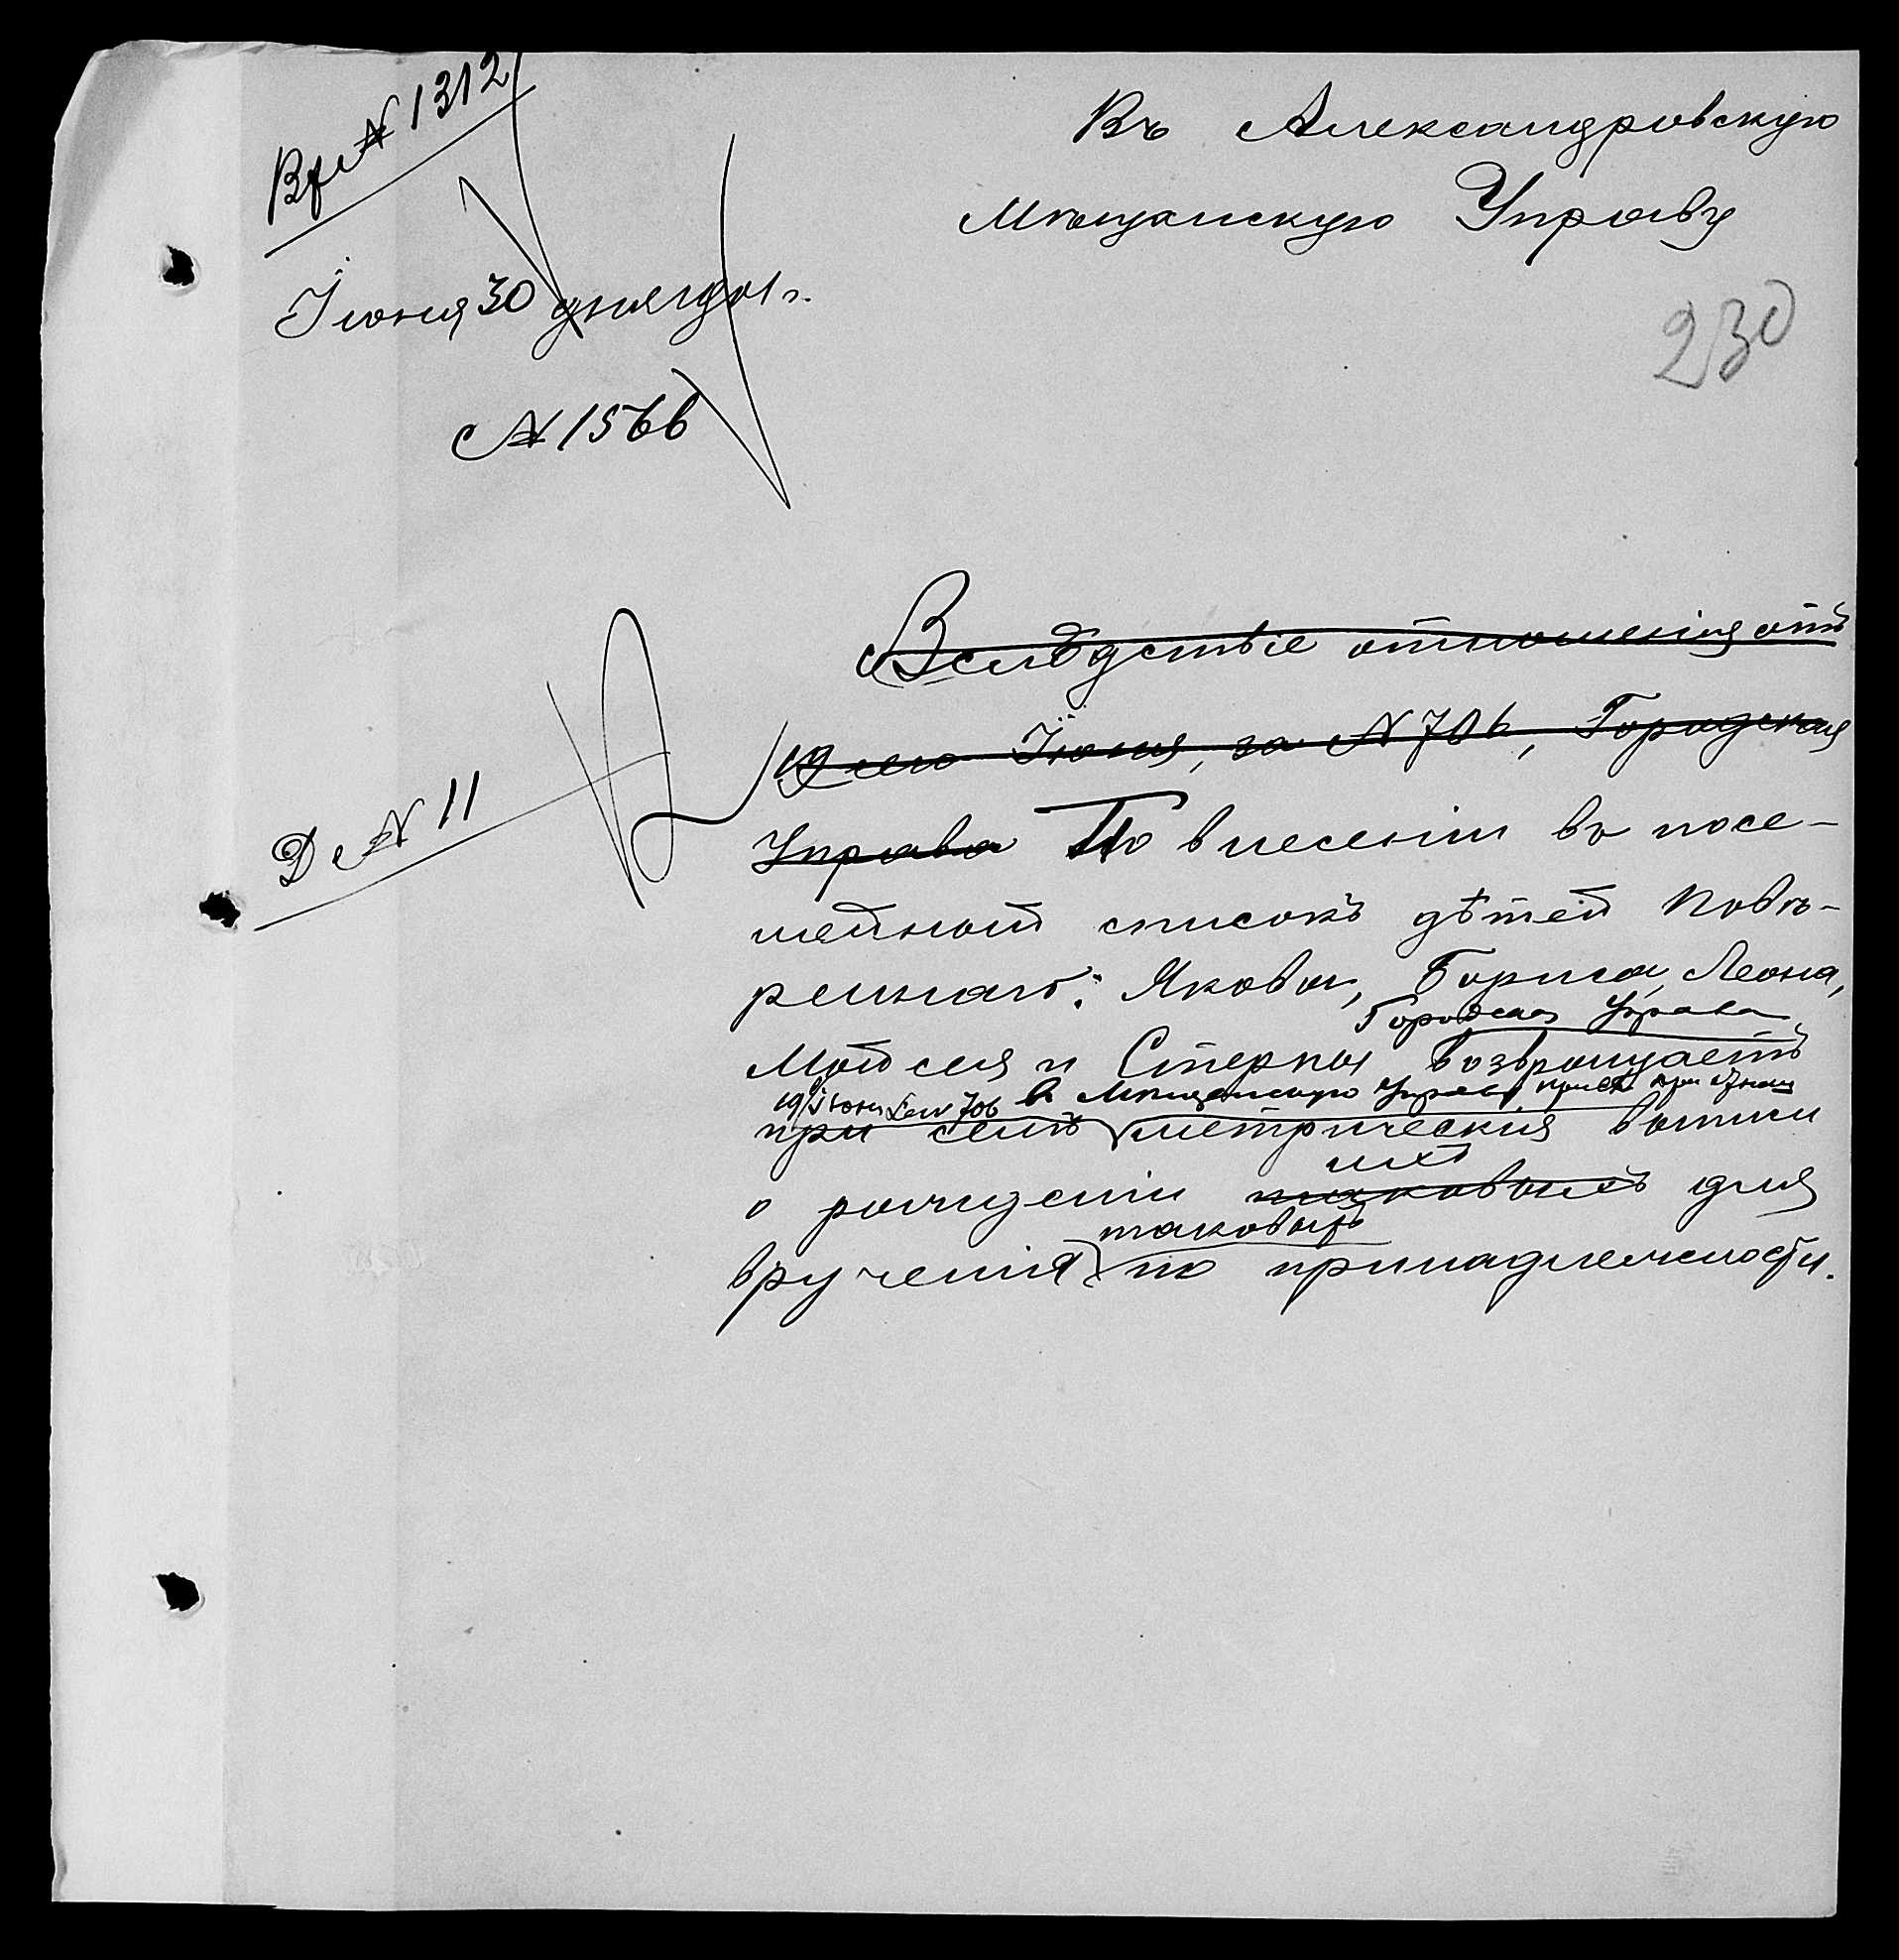 Вх № 1312
Въ Александровскую
Мѣщанскую Управу
Іюня 30 дня
230
№ 1566
Вслѣдствіе отношенія отъ
19 сего Іюня, за № 706, Городская
Д № 11
Управа По внесеніи въ посе-
мейный списокъ дѣтей Повѣ-
реннаго: Якова, Бориса, Леона,
Городская Управа
Мойсея и Стерны возвращаетъ
19 Іюня 706 въ Мѣщанскую Управу при
при семъ метрическія выписи
ихъ
о рожденіи таковыхъ для
таковыхъ
врученія по принадлежности.